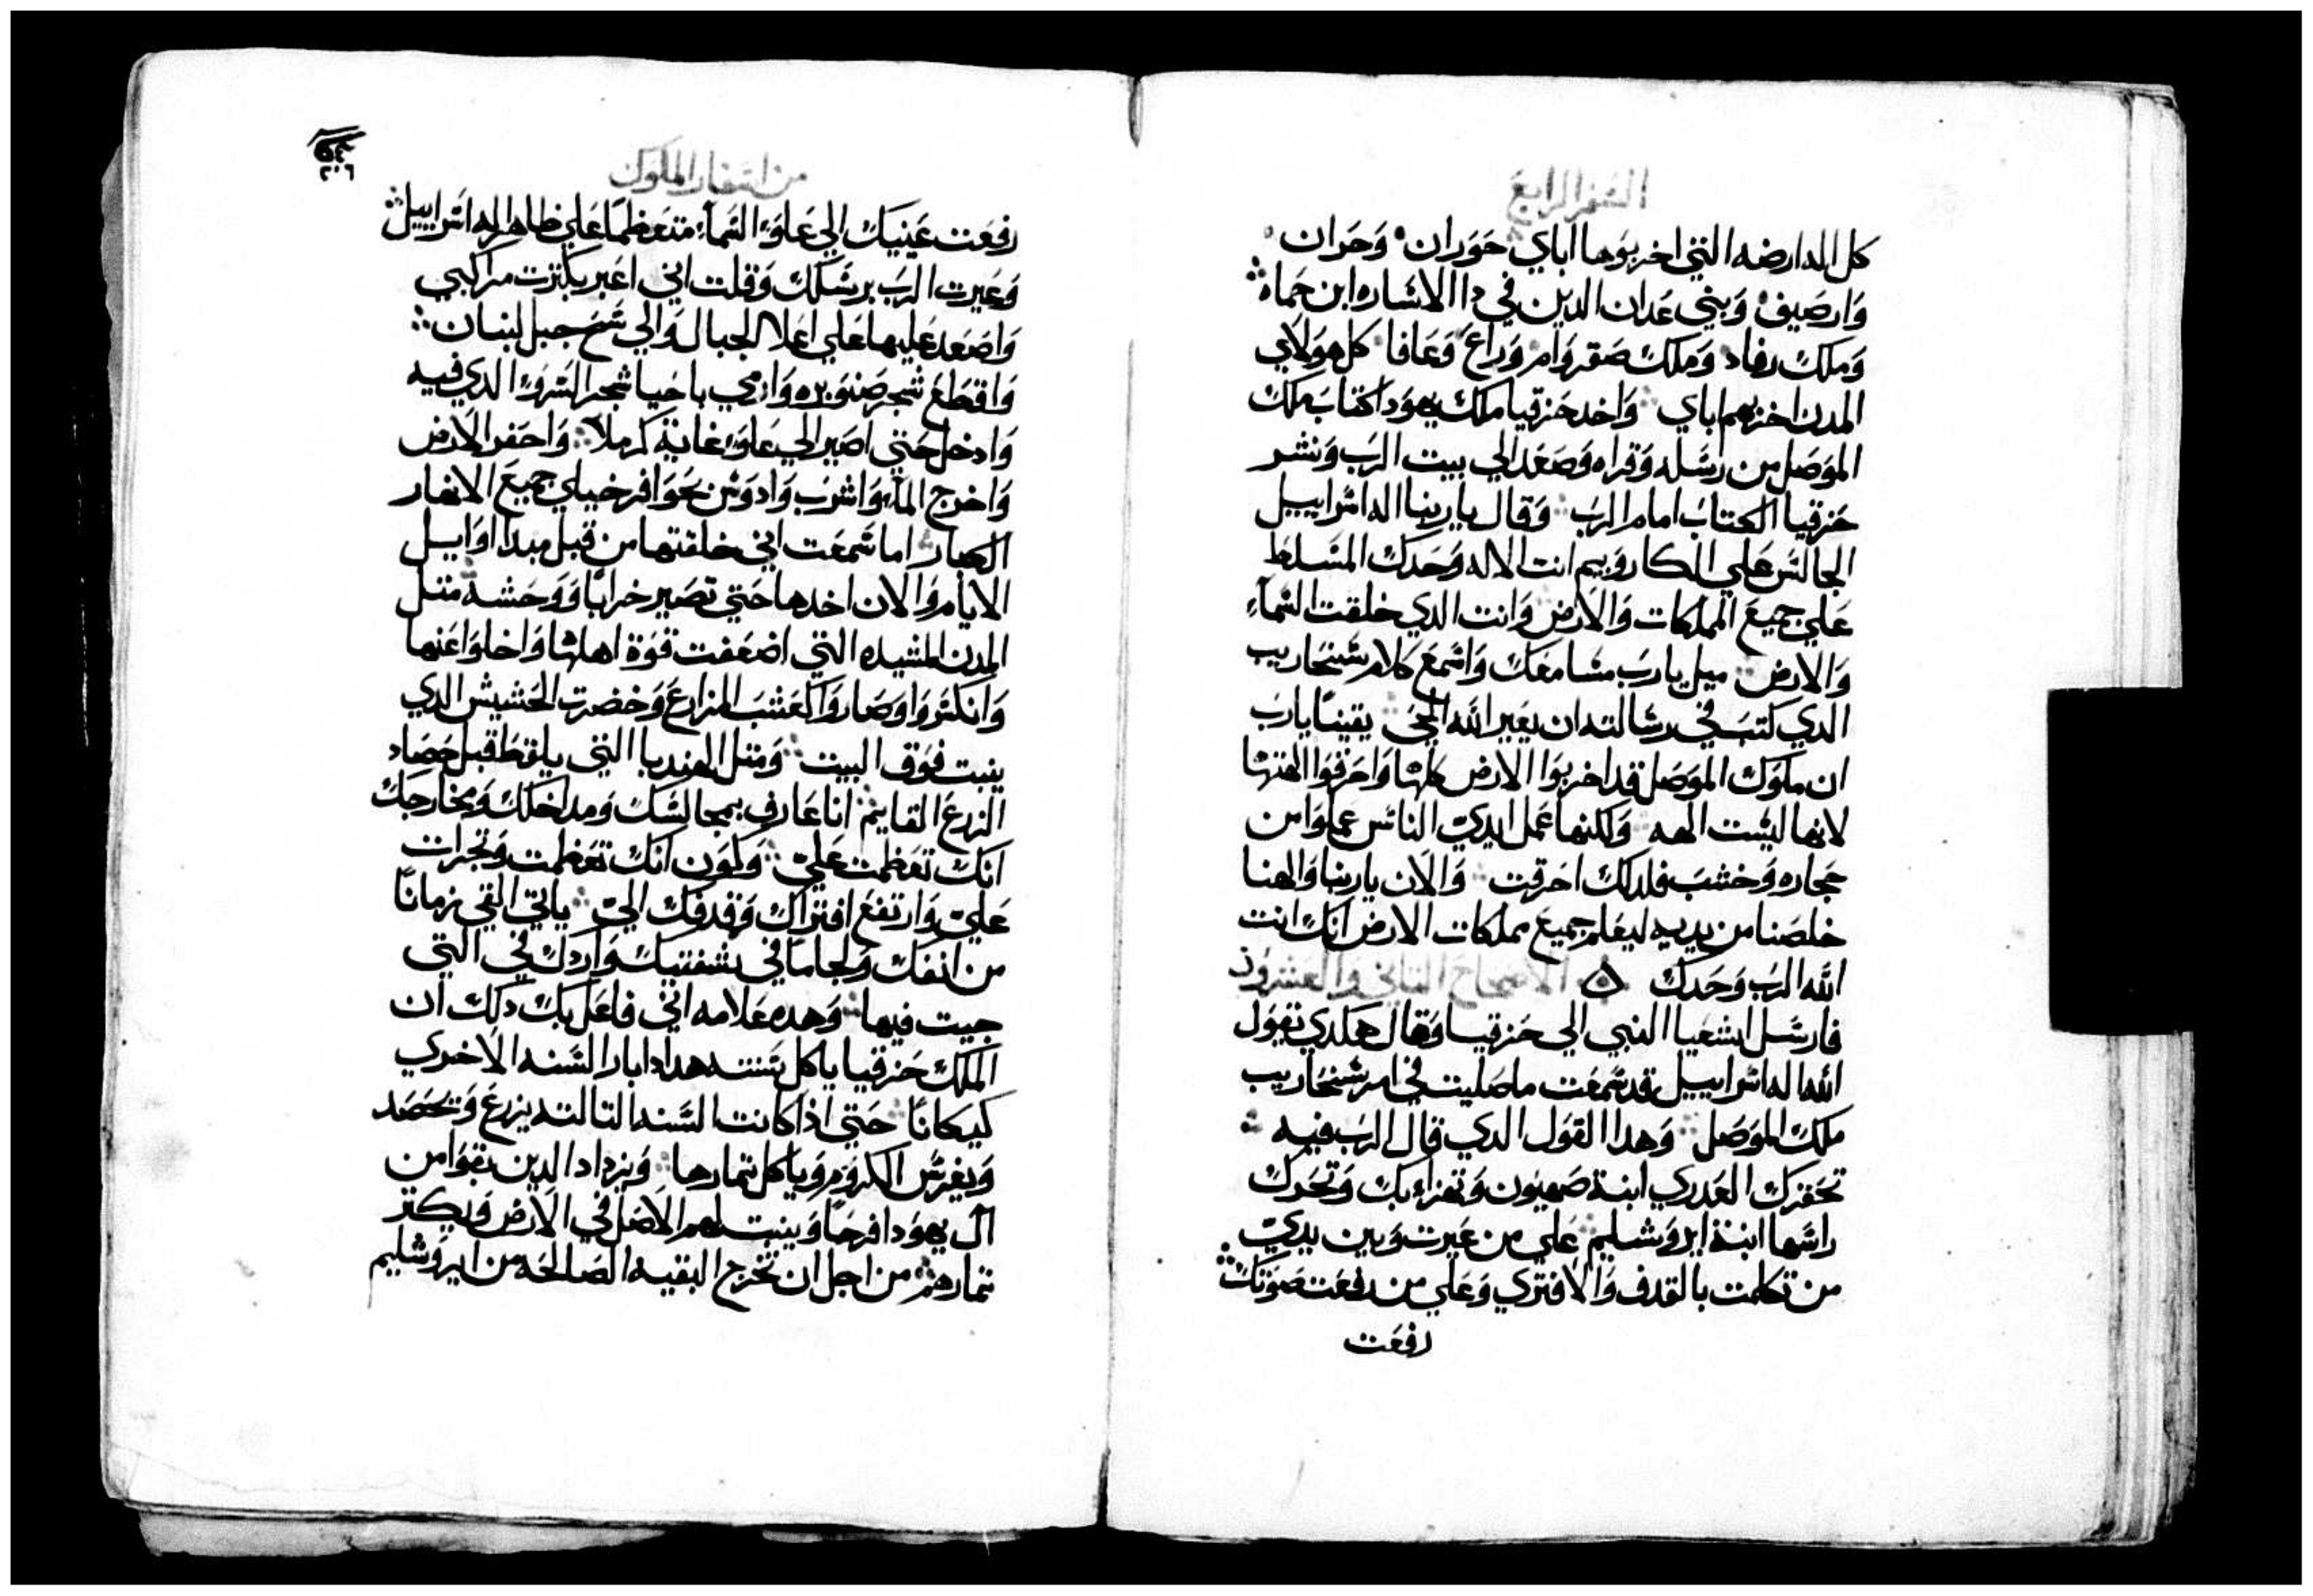 السفر الرابع
كل المدارضه التي اخربوها اباي حوران وحران
وارصيف وبني عدان الدين في دا الاشاره ابن حماه
وملك رفاد وملك صقروام وراع وعافا كل هولاي
المدن اخربهم اباي واخد حزقيا ملك يهودا كتاب ملك
الموصل من رسله وقراه وصعد الي بيت الرب ونشر
حزقيا الكتاب امام الرب وقال يا ربنا اله اسراييل
الجالس علي الكاروبيم انت الاله وحدك المسلط
علي جميع المملكات والارض وانت الدي خلقت السماء
والارض ميل يا رب مسامعك واسمع كلام سنحاريب
الدي كتب في رسالته ان يعير الله الحي يقينا يا رب
ان ملوك الموصل قد اخربوا الارض كلها واحرقوا الهتها
لانها ليست الهه ولكنها عمل ايدي الناس عملوا من
حجاره وخشب فلدلك احرقت والان يا ربنا والهنا
خلصنا من يديه ليعلم جميع مملكات الارض انك انت
الله الرب وحدك ه الاصحاح التاني والعشرون
فارسل اشعيا النبي الي حزقيا وقال هكدي تقول
الله اله اسراييل قد سمعت ما صليت في امر سنحاريب
ملك الموصل وهدا القول الدي قال الرب فيه
تحقرك العدري ابنة صهيون وتهزاء بك وتحرك
راسها ابنة ايروشليم علي من عيرت وبين يدي
من تكلمت بالقدف والافتري وعلي من رفعت صوتك
رفعت
٢٠٦
من اسفار الملوك
رفعت عينيك الي علوء السماء متعظما علي طاهر اله اسراييل
وعيرت الرب برسلك وقلت اني اعبر بكترت مراكبي
واصعد عليها علي اعلا الجبال والي شمخ جبل لبنان
واقطع شجر صنوبره وارمي باحيا شجر السروء الدي فيه
وادخل حتي اصير الي علوء غابة كرملا واحفر الارض
واخرج الماء واشرب وادوس بحوافر خيلي جميع الانهار
الكبار اما سمعت اني خلقتها من قبل مبدا اوايل
الايام والان اخدها حتي تصير خرابا ووحشة متل
المدن المشيده التي اضعفت قوة اهلها واخلوا عنها
وانكسروا وصاروا كعشب المزارع وخضرت الحشيش الدي
ينبت فوق البيت ومتل الهندبا التي يلقط قبل حصاد
الزرع القايم انا عارف بمجالسك ومداخلك ومخارجك
انك تعظمت علي ولكون انك تعظمت وتجرات
علي وارتفع افتراك وقدفك الي ياتي القي زمانا
من انفك ولجاما في شفتيك واردك في التي
جيت فيها وهده علامه اني فاعل بك دلك ان
الملك حزقيا ياكل سنته هدا دابار السنه الاخري
كيكانا حتي ادا كانت السنه التالته يزرع وتحصد
ويغرس الكروم وياكل تمارها ويزداد الدين بقوا من
آل يهودا فرحا وينبت لهم الاصل في الارض ويكتر
تمارهم من اجل ان تخرج البقيه الصالحه من ايروشليم